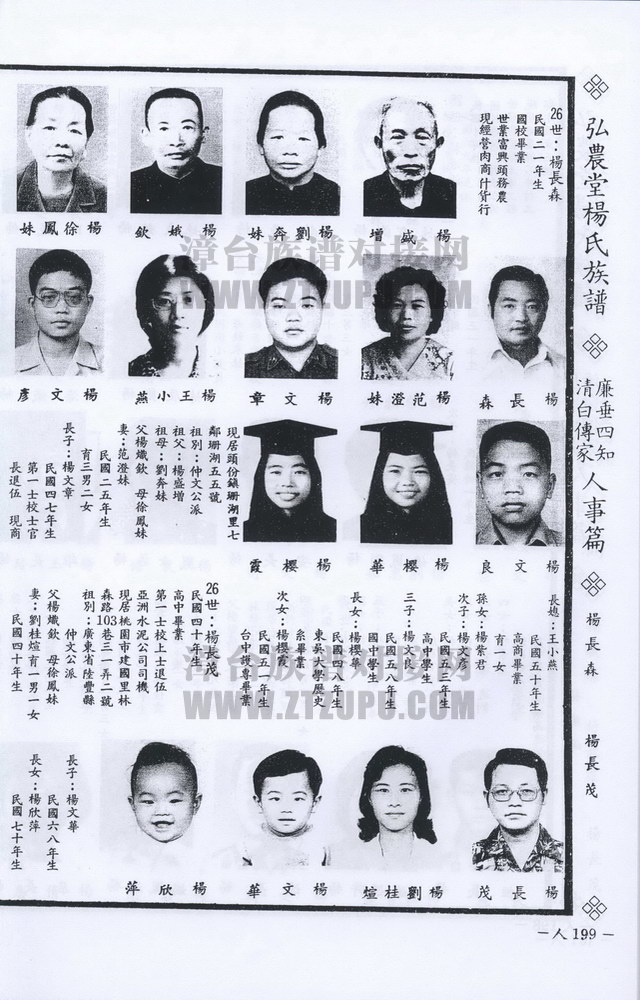 弘農堂楊氏族譜
廉垂四知
清白傳家
人事篇
楊長森
楊長茂
26世：楊長森
民國二一年生
國校畢業
世業富興頭務農
現經營肉商什貨行
楊盛增
楊劉奔妹
楊娥欽
楊徐鳳妹
楊長森
楊范澄妹
楊文章
楊王小燕
楊文彥
現居頭份鎮珊湖里七
鄰珊湖五五號
祖別：仲文公派
祖父：楊盛增
祖母：劉奔妹
父楊熾欽 母徐鳳妹
妻：范澄妹
民國二五年生
育三男二女
長子：楊文章
民國四七年生
第一士校士官
長退伍 現商
楊文良
楊櫻華
楊櫻霞
長媳：王小燕
民國五十年生
高商畢業
育一女
孫女：楊紫君
次子：楊文彥
民國五三年生
高中學生
三子：楊文良
民國五八年生
國中學生
長女：楊櫻華
民國四八年生
東吳大學歷史
系畢業
次女：楊櫻霞
民國五一年生
台中護專畢業
26世：楊長茂
民國四十年生
高中畢業
第一士校上士退伍
亞洲水泥公司司機
現居桃園市建國里林
森路103巷三一弄二號
祖別：廣東省陸豐縣
仲文公派
父楊熾欽 母徐鳳妹
妻：劉桂煊育一男一女
民國四十年生
長子：楊文華
民國六八年生
長女：楊欣萍
民國七十年生
楊長茂
楊劉桂煊
楊文華
楊欣萍
－人199－
漳台族谱对接网
WWW.ZTZUPU.COM
漳台族谱对接网
WWW.ZTZUPU.COM